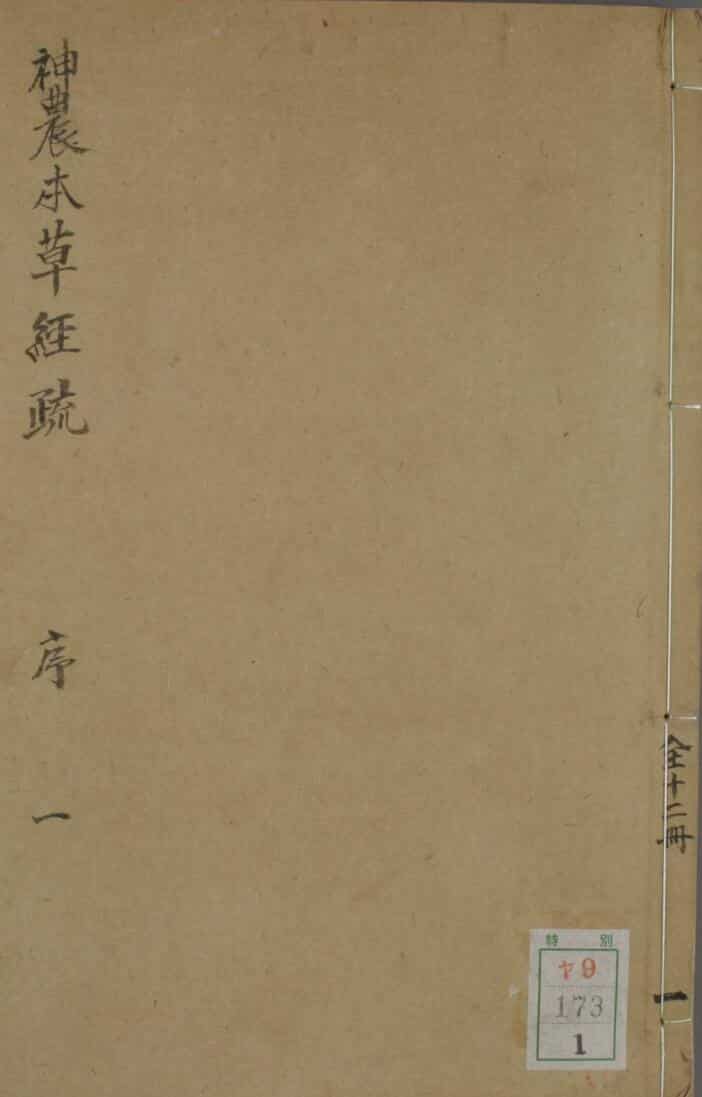 神農本草經疏 序 一
全十二冊 一
特別
ヤ9
173
1